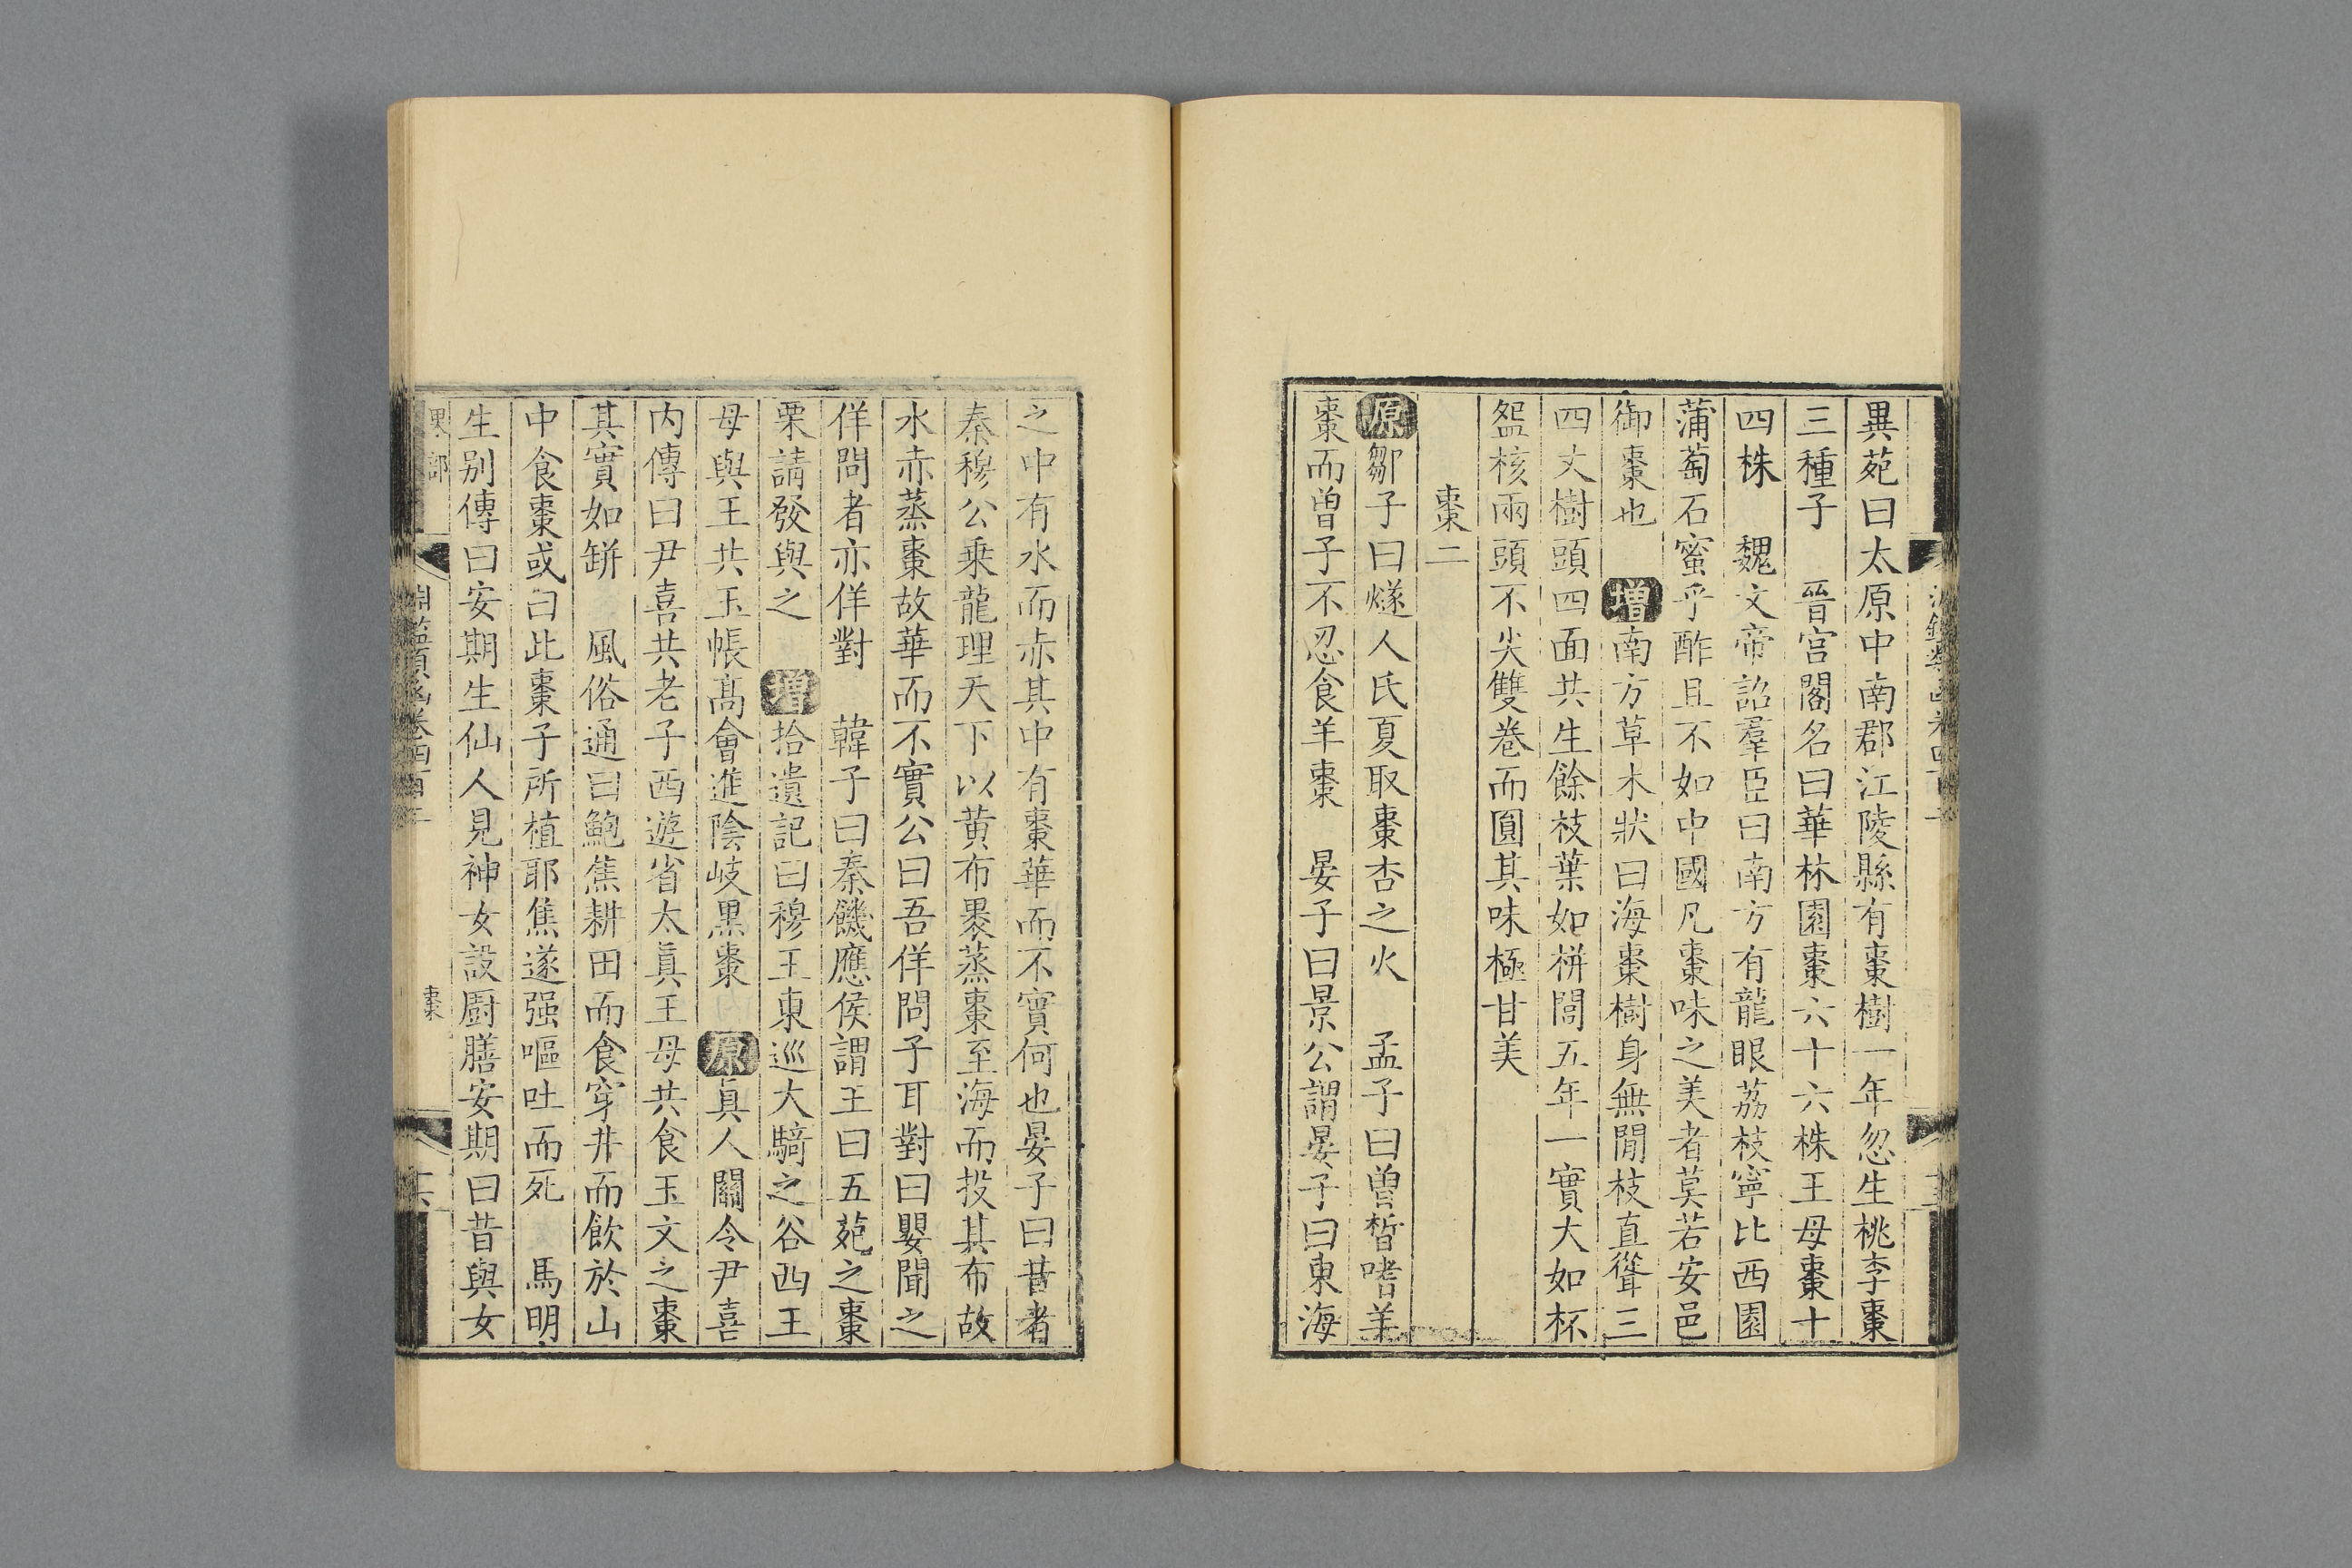 異苑曰太原中南郡江陵縣有棗樹一年忽生桃李棗
三種子　晉宮閣名曰華林園棗六十六株王母棗十
四株　魏文帝詔羣臣曰南方有龍眼荔枝寧比西園
蒲萄石蜜乎酢且不如中國凡棗味之美者莫若安邑
御棗也　增南方草木狀曰海棗樹身無閒枝直聳三
四丈樹頭四面共生餘枝葉如栟閭五年一實大如杯
盌核兩頭不尖雙卷而圓其味極甘美
棗二
原鄒子曰燧人氏夏取棗杏之火　孟子曰曾晳嗜羊
棗而曾子不忍食羊棗　晏子曰景公謂晏子曰東海
之中有水而赤其中有棗華而不實何也晏子曰昔者
秦穆公乘龍理天下以黃布裹蒸棗至海而投其布故
水赤蒸棗故華而不實公曰吾佯問子耳對曰嬰聞之
佯問者亦佯對　韓子曰秦饑應侯謂王曰五苑之棗
栗請發與之　增拾遺記曰穆王東巡大騎之谷西王
母與王共玉帳高會進陰岐黑棗　原眞人關令尹喜
內傳曰尹喜共老子西遊省太眞王母共食玉文之棗
其實如缾　風俗通曰鮑焦耕田而食穿井而飲於山
中食棗或曰此棗子所植耶焦遂强嘔吐而死　馬明
生别傳曰安期生仙人見神女設厨膳安期曰昔與女
果部
淵鑑類函卷四百二
棗